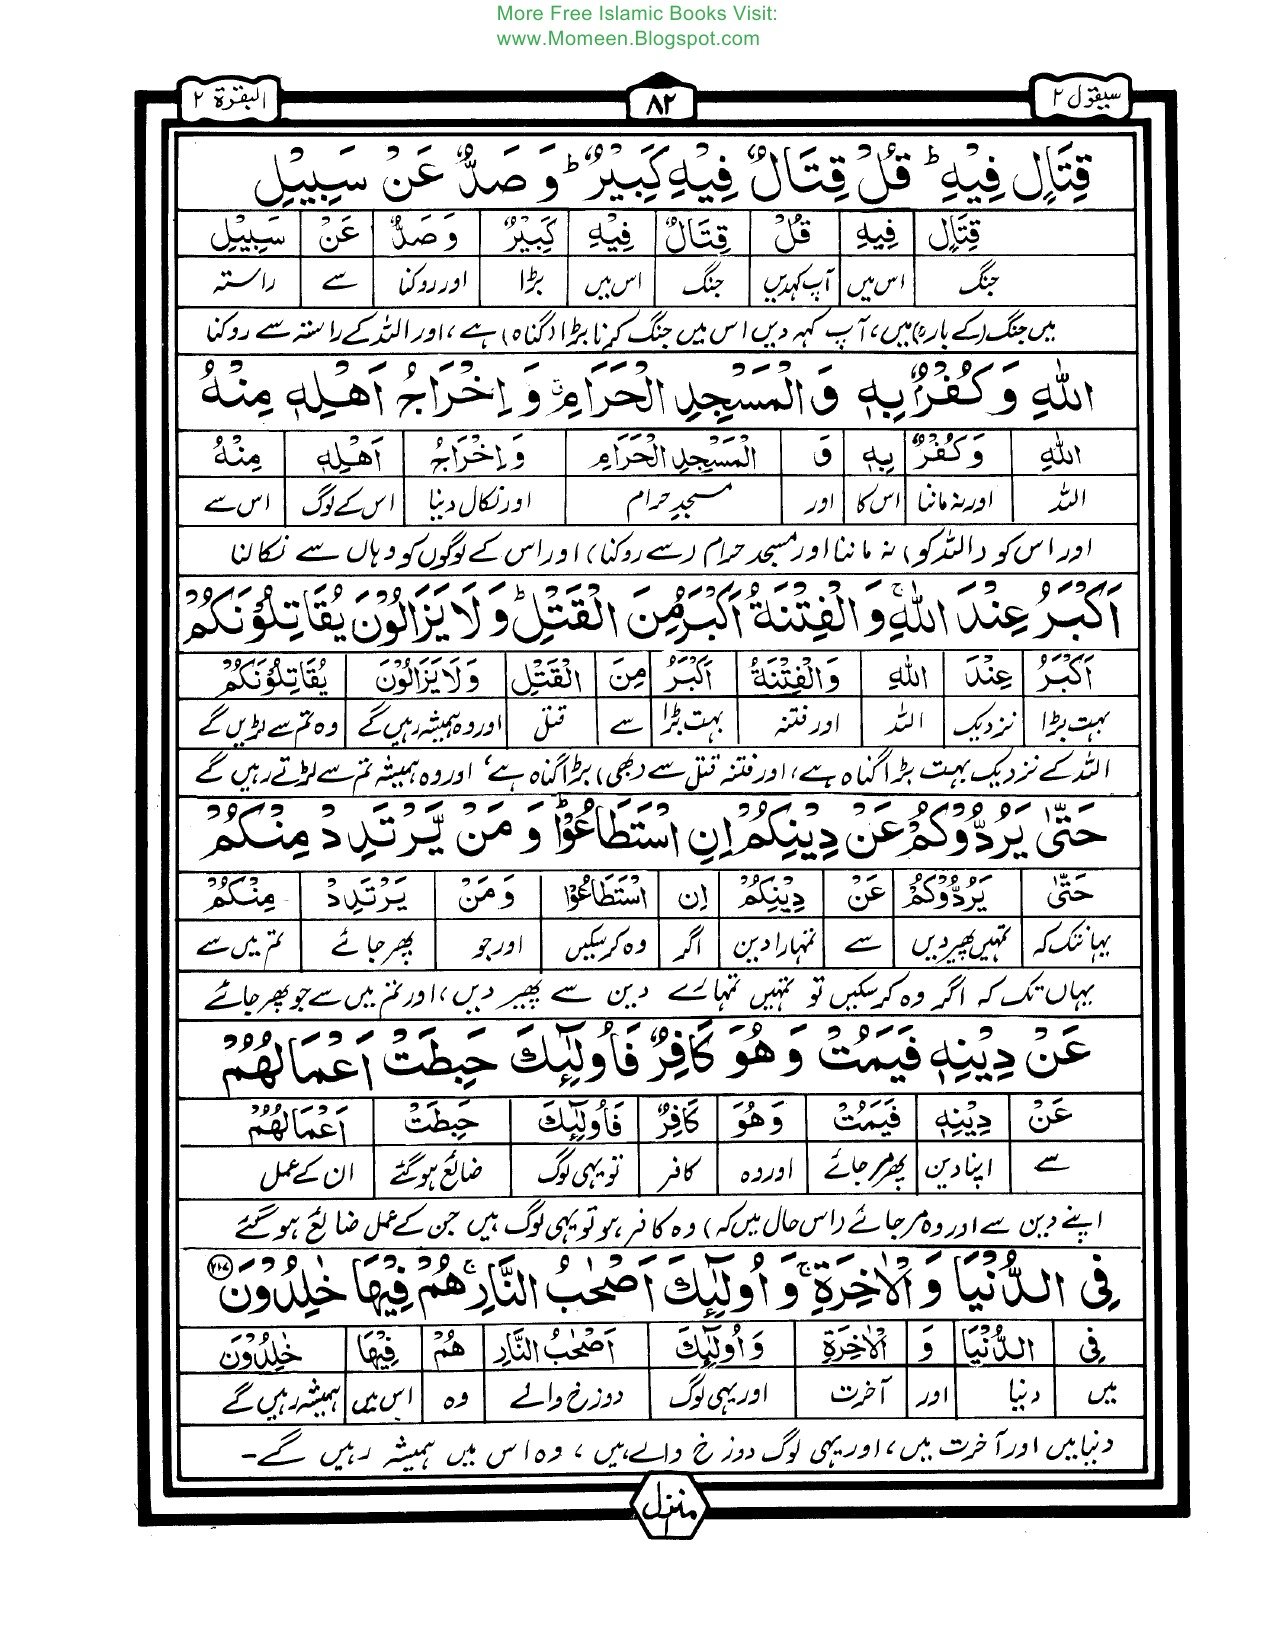 More Free Islamic Books Visit:
www.Momeen.Blogspot.com
سیقول ۲ ۸۲ البقرة ۲
قِتَالٍ فِيْهِ ؕ قُلْ قِتَالٌ فِيْهِ كَبِيْرٌ ؕ وَ صَدٌّ عَنْ سَبِيْلِ
قِتَالٍ فِيْهِ قُلْ قِتَالٌ فِيْهِ كَبِيْرٌ وَ صَدٌّ عَنْ سَبِيْلِ
جنگ اس میں آپ کہدیں جنگ اس میں بڑا اور روکنا سے راستہ
میں جنگ (کے بارے) میں، آپ کہہ دیں اس میں جنگ کرنا بڑا (گناہ) ہے، اور اللہ کے راستہ سے روکنا
اللّٰهِ وَ كُفْرٌۢ بِهٖ وَ الْمَسْجِدِ الْحَرَامِ ۗ وَ اِخْرَاجُ اَهْلِهٖ مِنْهُ
اللّٰهِ وَ كُفْرٌۢ بِهٖ وَ الْمَسْجِدِ الْحَرَامِ وَ اِخْرَاجُ اَهْلِهٖ مِنْهُ
اللہ اور نہ ماننا اس کا اور مسجد حرام اور نکال دینا اس کے لوگ اس سے
اور اس کو (اللہ کو) نہ ماننا اور مسجد حرام (سے روکنا) اور اس کے لوگوں کو وہاں سے نکالنا
اَكْبَرُ عِنْدَ اللّٰهِ ۚ وَ الْفِتْنَةُ اَكْبَرُ مِنَ الْقَتْلِ ؕ وَ لَا يَزَالُوْنَ يُقَاتِلُوْنَكُمْ
اَكْبَرُ عِنْدَ اللّٰهِ وَ الْفِتْنَةُ اَكْبَرُ مِنَ الْقَتْلِ وَ لَا يَزَالُوْنَ يُقَاتِلُوْنَكُمْ
بہت بڑا نزدیک اللہ اور فتنہ بہت بڑا سے قتل اور وہ ہمیشہ رہیں گے وہ تم سے لڑیں گے
اللہ کے نزدیک بہت بڑا گناہ ہے، اور فتنہ قتل سے (بھی) بڑا گناہ ہے، اور وہ ہمیشہ تم سے لڑتے رہیں گے
حَتّٰى يَرُدُّوْكُمْ عَنْ دِيْنِكُمْ اِنِ اسْتَطَاعُوْا ؕ وَ مَنْ يَّرْتَدِدْ مِنْكُمْ
حَتّٰى يَرُدُّوْكُمْ عَنْ دِيْنِكُمْ اِنِ اسْتَطَاعُوْا وَ مَنْ يَرْتَدِدْ مِنْكُمْ
یہانتک کہ تمہیں پھیر دیں سے تمہارا دین اگر وہ کرسکیں اور جو پھر جائے تم میں سے
یہاں تک کہ اگر وہ کرسکیں تو تمہیں تمہارے دین سے پھیر دیں، اور تم میں سے جو پھر جائے
عَنْ دِيْنِهٖ فَيَمُتْ وَ هُوَ كَافِرٌ فَاُولٰٓئِكَ حَبِطَتْ اَعْمَالُهُمْ
عَنْ دِيْنِهٖ فَيَمُتْ وَ هُوَ كَافِرٌ فَاُولٰٓئِكَ حَبِطَتْ اَعْمَالُهُمْ
سے اپنا دین پھر مر جائے اور وہ کافر تو یہی لوگ ضائع ہوگئے ان کے عمل
اپنے دین سے اور وہ مر جائے (اس حال میں کہ) وہ کافر ہو تو یہی لوگ ہیں جن کے عمل ضائع ہوگئے
فِي الدُّنْيَا وَ الْاٰخِرَةِ ۚ وَ اُولٰٓئِكَ اَصْحٰبُ النَّارِ ۚ هُمْ فِيْهَا خٰلِدُوْنَ ۲۱۷
فِي الدُّنْيَا وَ الْاٰخِرَةِ وَ اُولٰٓئِكَ اَصْحٰبُ النَّارِ هُمْ فِيْهَا خٰلِدُوْنَ
میں دنیا اور آخرت اور یہی لوگ دوزخ والے وہ اس میں ہمیشہ رہیں گے
دنیا میں اور آخرت میں، اور یہی لوگ دوزخ والے ہیں، وہ اس میں ہمیشہ رہیں گے۔
منزل ۱